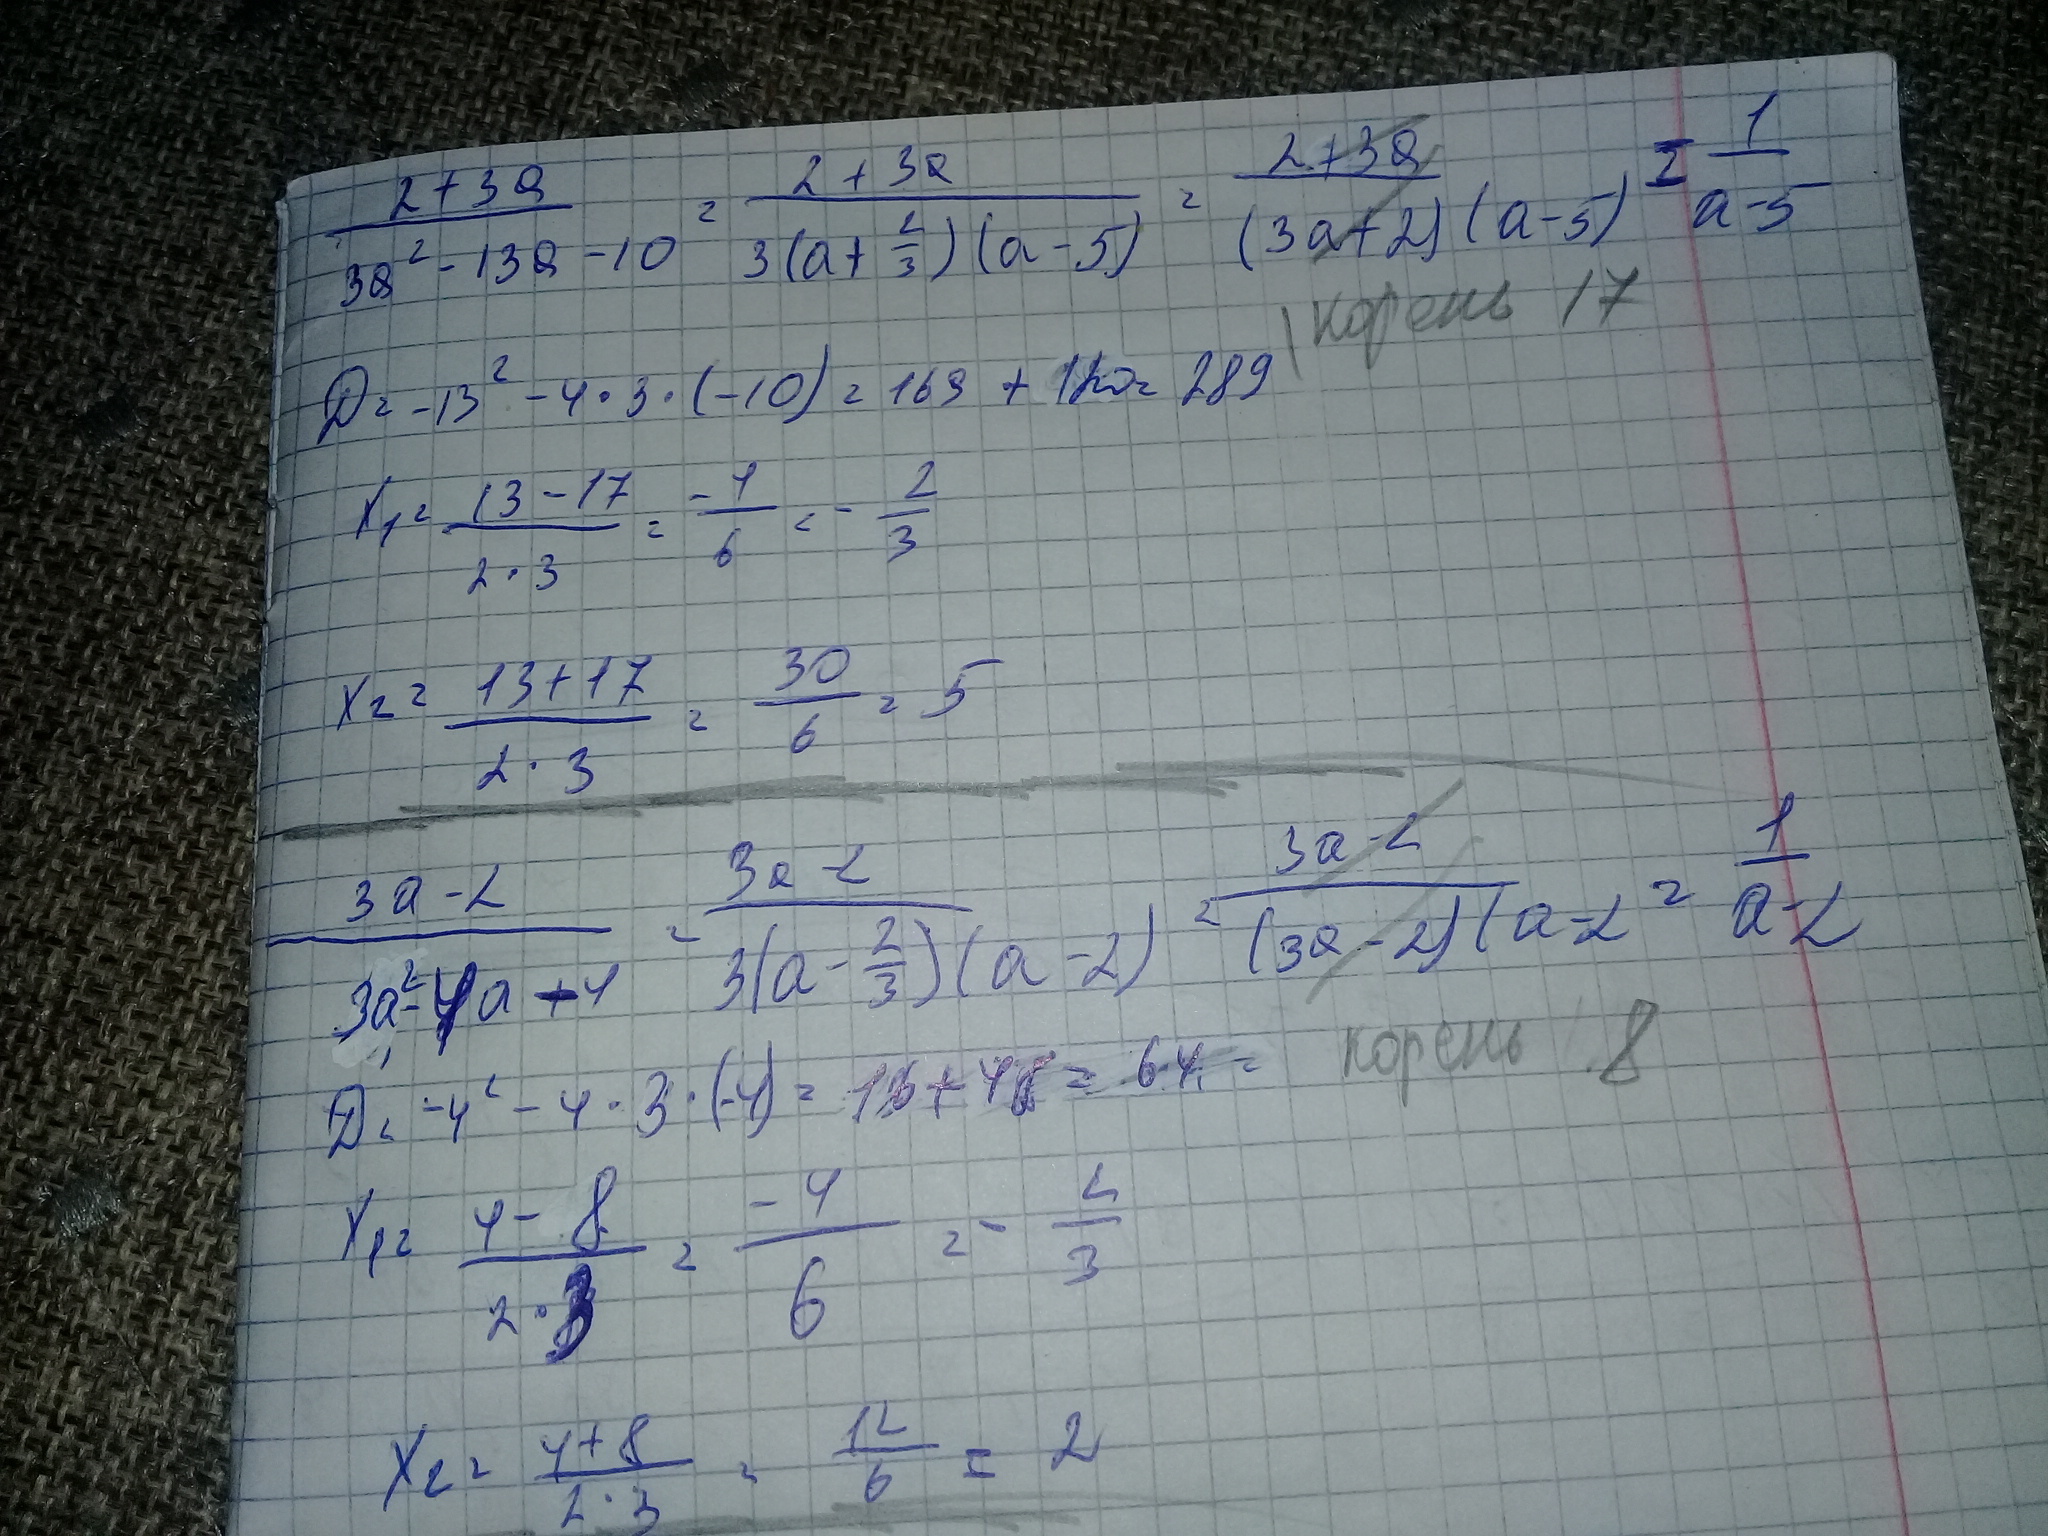 (2 + 3a)/(3a² - 13a - 10) = (2 + 3a)/(3(a + 2/3)(a - 5)) = (2 + 3a)/((3a + 2)(a - 5)) = 1/(a - 5)
корень 17
D = -13² - 4 · 3 · (-10) = 169 + 120 = 289
x₁ = (13 - 17)/(2 · 3) = -4/6 = - 2/3
x₂ = (13 + 17)/(2 · 3) = 30/6 = 5
(3a - 2)/(3a² - 4a + 4) = (3a - 2)/(3(a - 2/3)(a - 2)) = (3a - 2)/((3a - 2)(a - 2 = 1/(a - 2)
корень 8
D = -4² - 4 · 3 · (-4) = 16 + 48 = 64 =
x₁ = (4 - 8)/(2 · 3) = -4/6 = - 2/3
x₂ = (4 + 8)/(2 · 3) = 12/6 = 2